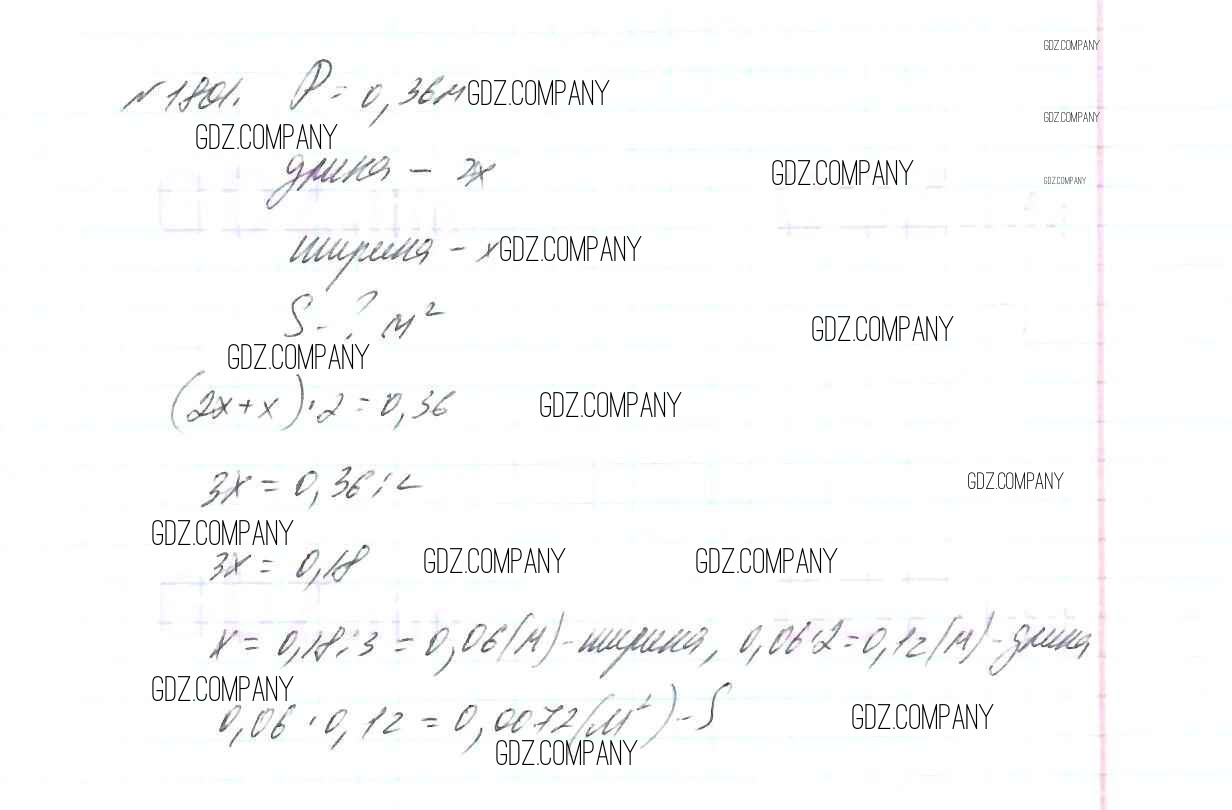 GDZ.COMPANY
№1801. P = 0,36м GDZ.COMPANY
GDZ.COMPANY
GDZ.COMPANY
длина – 2x GDZ.COMPANY
GDZ.COMPANY
ширина – x GDZ.COMPANY
S - ? м²
GDZ.COMPANY
GDZ.COMPANY
(2x+x)·2=0,36 GDZ.COMPANY
3x = 0,36:2 GDZ.COMPANY
GDZ.COMPANY
3x = 0,18 GDZ.COMPANY GDZ.COMPANY
x = 0,18:3 = 0,06(м) - ширина, 0,06·2=0,12(м) - длина
GDZ.COMPANY
0,06·0,12 = 0,0072(м²) - S GDZ.COMPANY
GDZ.COMPANY